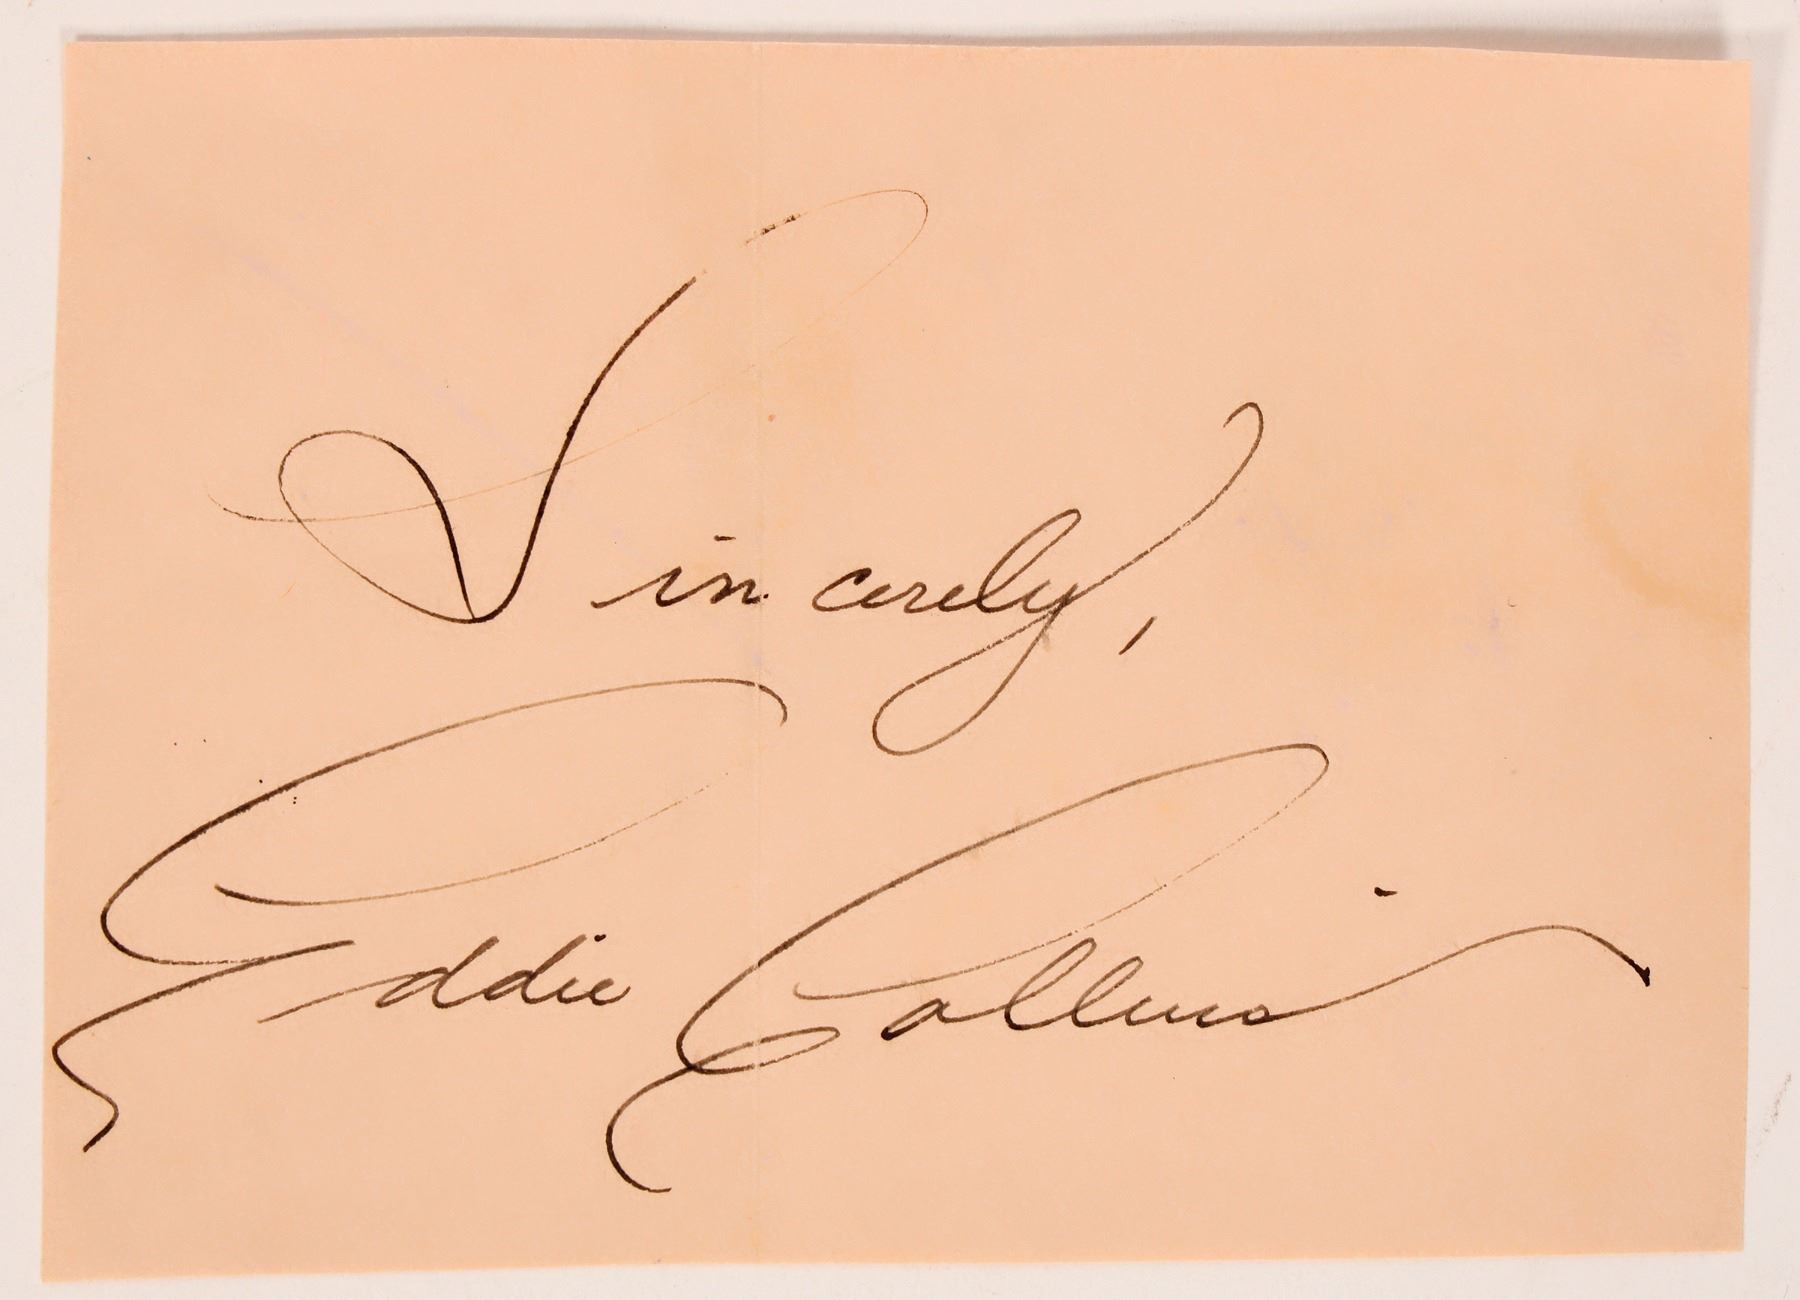 Sincerely,
Eddie Collins